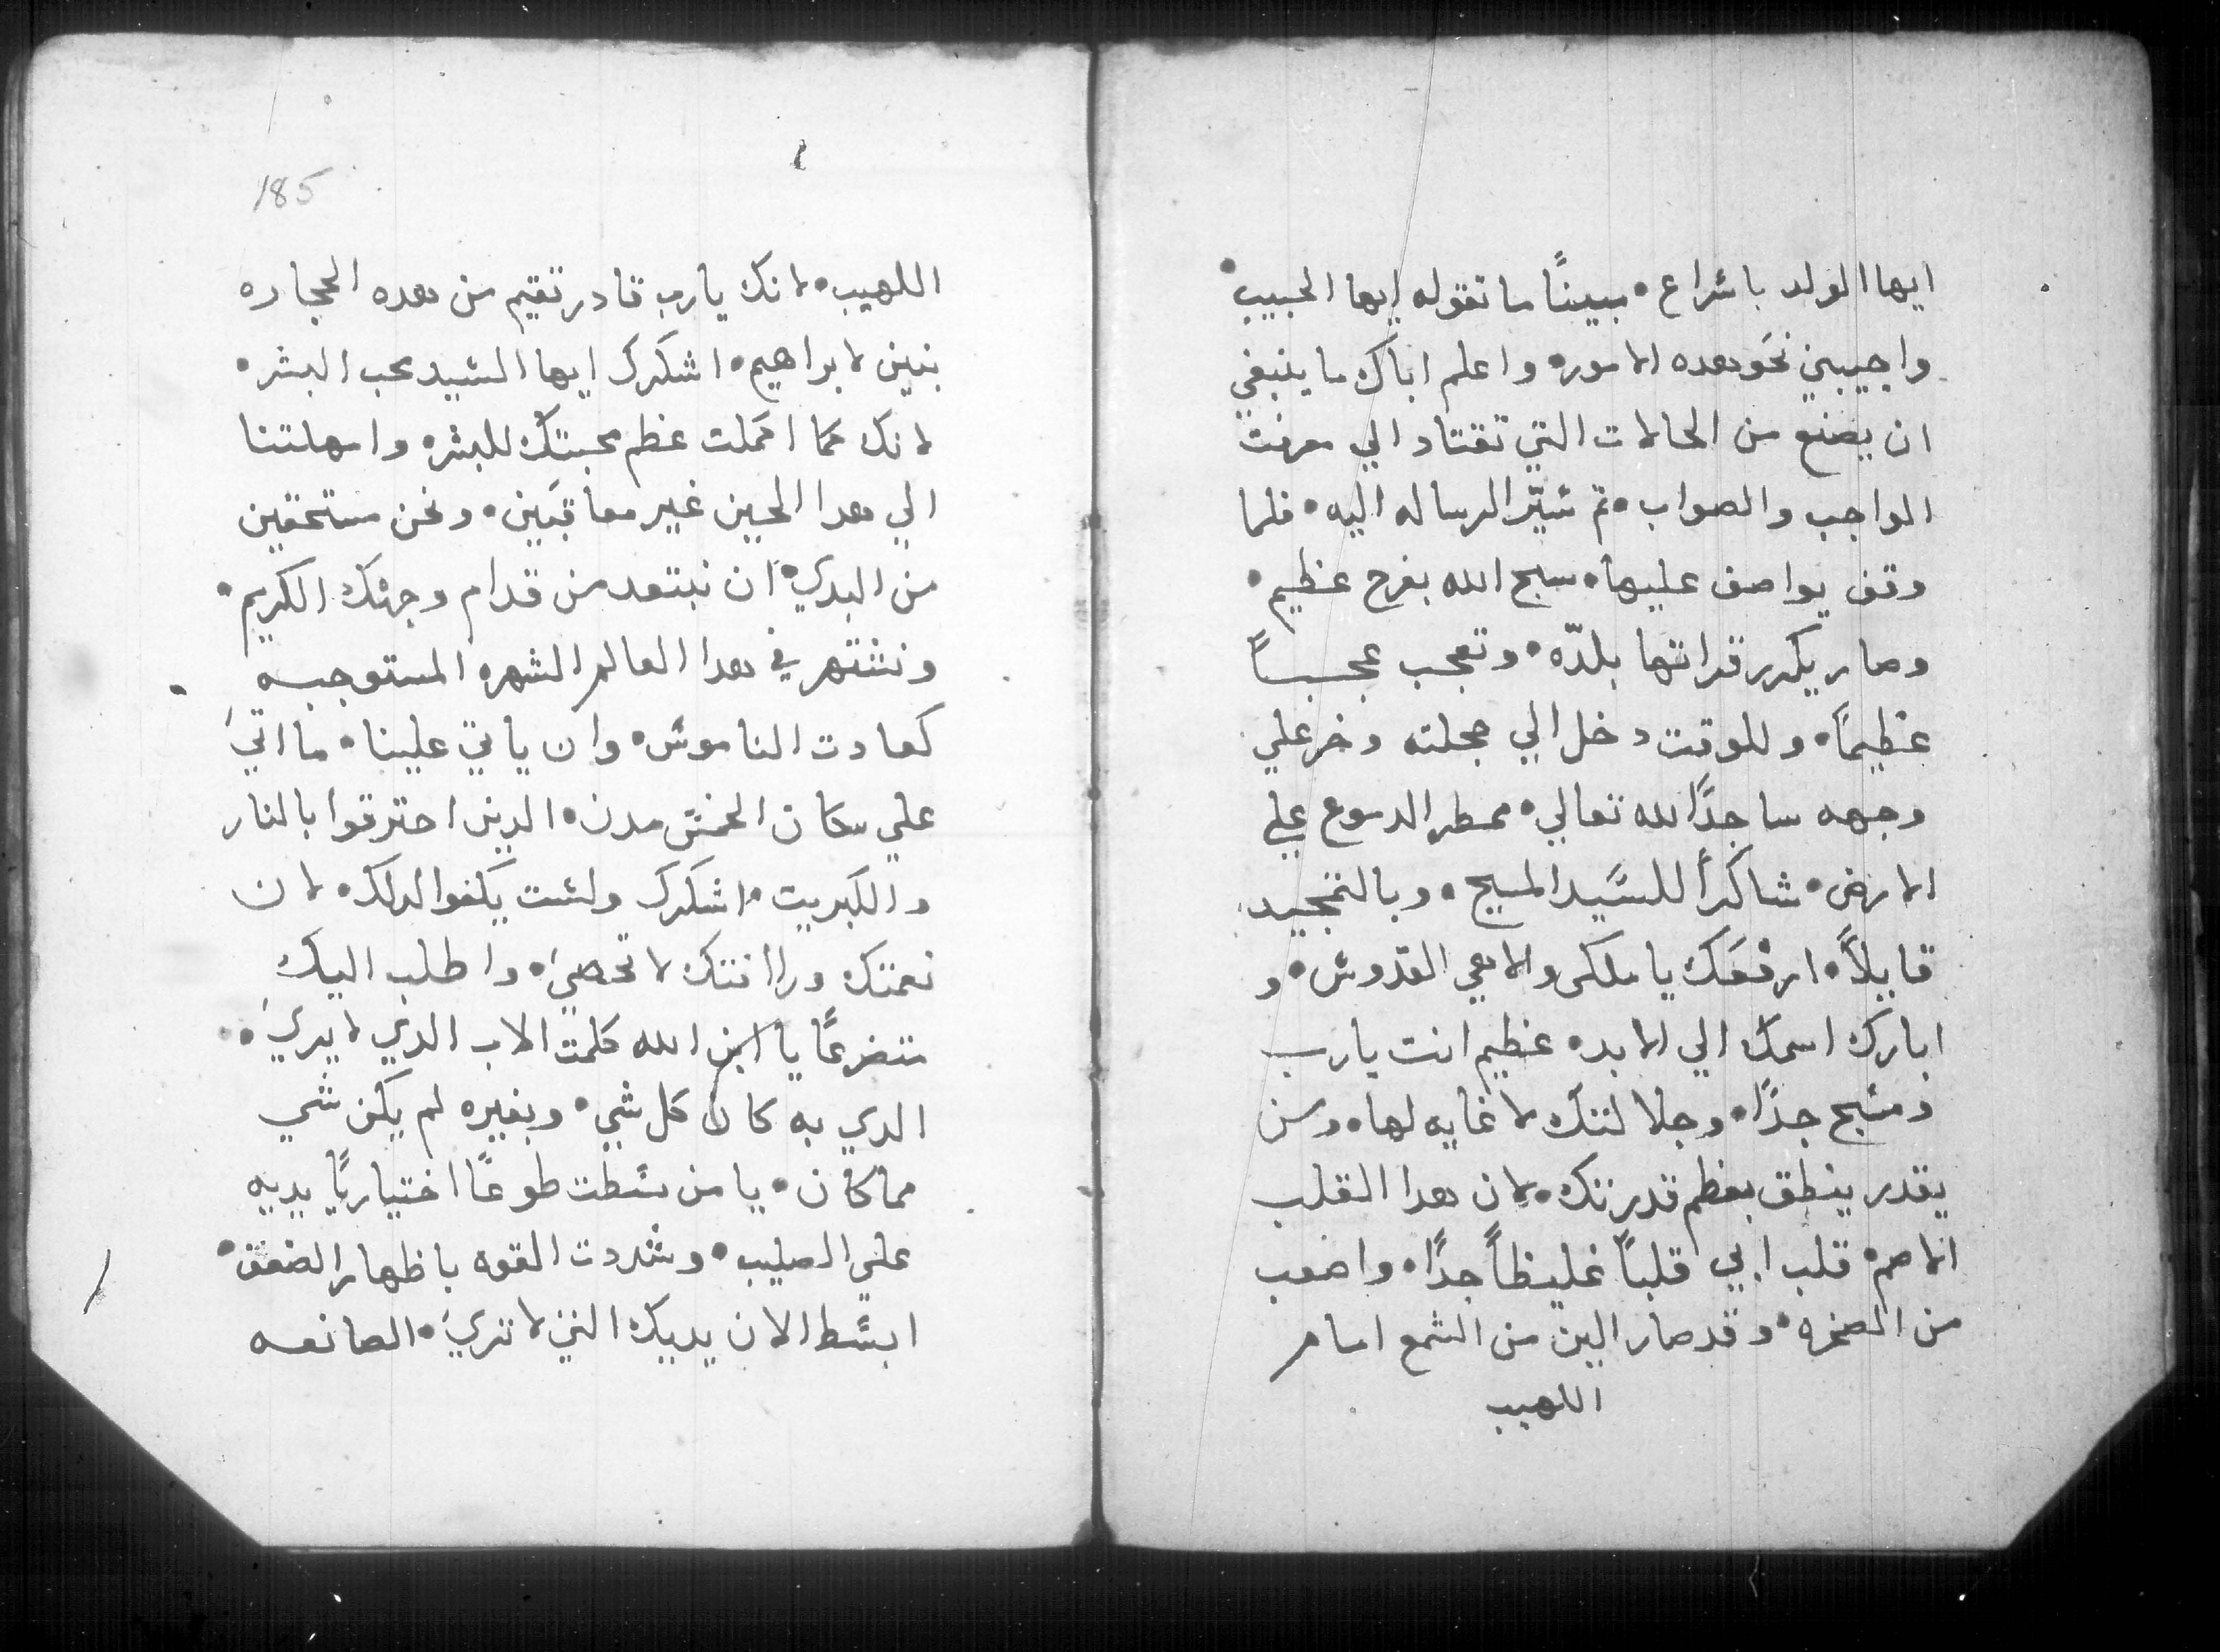 ايها الولد باسراع • مبينًا ما تقوله ايها الحبيب •
واجيبني نحو هده الامور • واعلم اباك ما ينبغي
ان يصنع من الحالات التي تقتاد الي معرفت
الواجب والصواب • تم سيّر الرساله اليه • فلما
وقف يواصف عليها • سبح الله بفرح عظيم •
وصار يكرر قراتها بلدّه • وتعجب عجبـــاً
عظيمًا • وللوقت دخل الي حجلته وخر علي
وجهه ساجدًا لله تعالي • ممطر الدموع علي
الارض • شاكراً للسَّيد المسيح • وبالتمجيد
قايلاً • ارفعَك يا ملكى والاهي القدوس • و
ابارك اسمك الي الابد • عظيم انت يارب
ومسبح جدًا • وجلالتك لا غايه لها • ومن
يقدر ينطق بعظم قدرتك • لان هدا القلب
الاصم • قلب ابي قلباً غليظاً جدًا • واصعب
من الصخره • وقد صار الين من الشمع امام
اللهيب
185
اللهيب • لانك يارب قادر تقيم من هده الحجاره
بنين لابراهيم • اشكرك ايها السيد محب البشر •
لانك كما اكملت عظم محبتك للبشر • وامهلتنا
الي هدا الحين غير معاقبَين • ونحن مستحقين
من البدي • ان نبتعد من قدام وجهك الكريم •
ونشتهر في هدا العالم الشهره المستوجبـــه
كعادت الناموس • وان ياتي علينا • ما اتيَ
علي سكان الخمس مدن • الدين احترقوا بالنار
والكبريت • اشكرك ولست بكفوا لدلك • لان
نعمتك ورأفتك لا تحصيَ • واطلب اليك
متضرعًا يا ابن الله كلمت الاب الدي لا يريَ •
الدي به كان كل شي • وبغيره لم يكن شي
مما كان • يا من بسطت طوعًا اختياريًا يديه
علي الصليب • وشددت القوه باظهار الضعف •
ابسط الان يديك التي لا تريَ • الصانعـــه